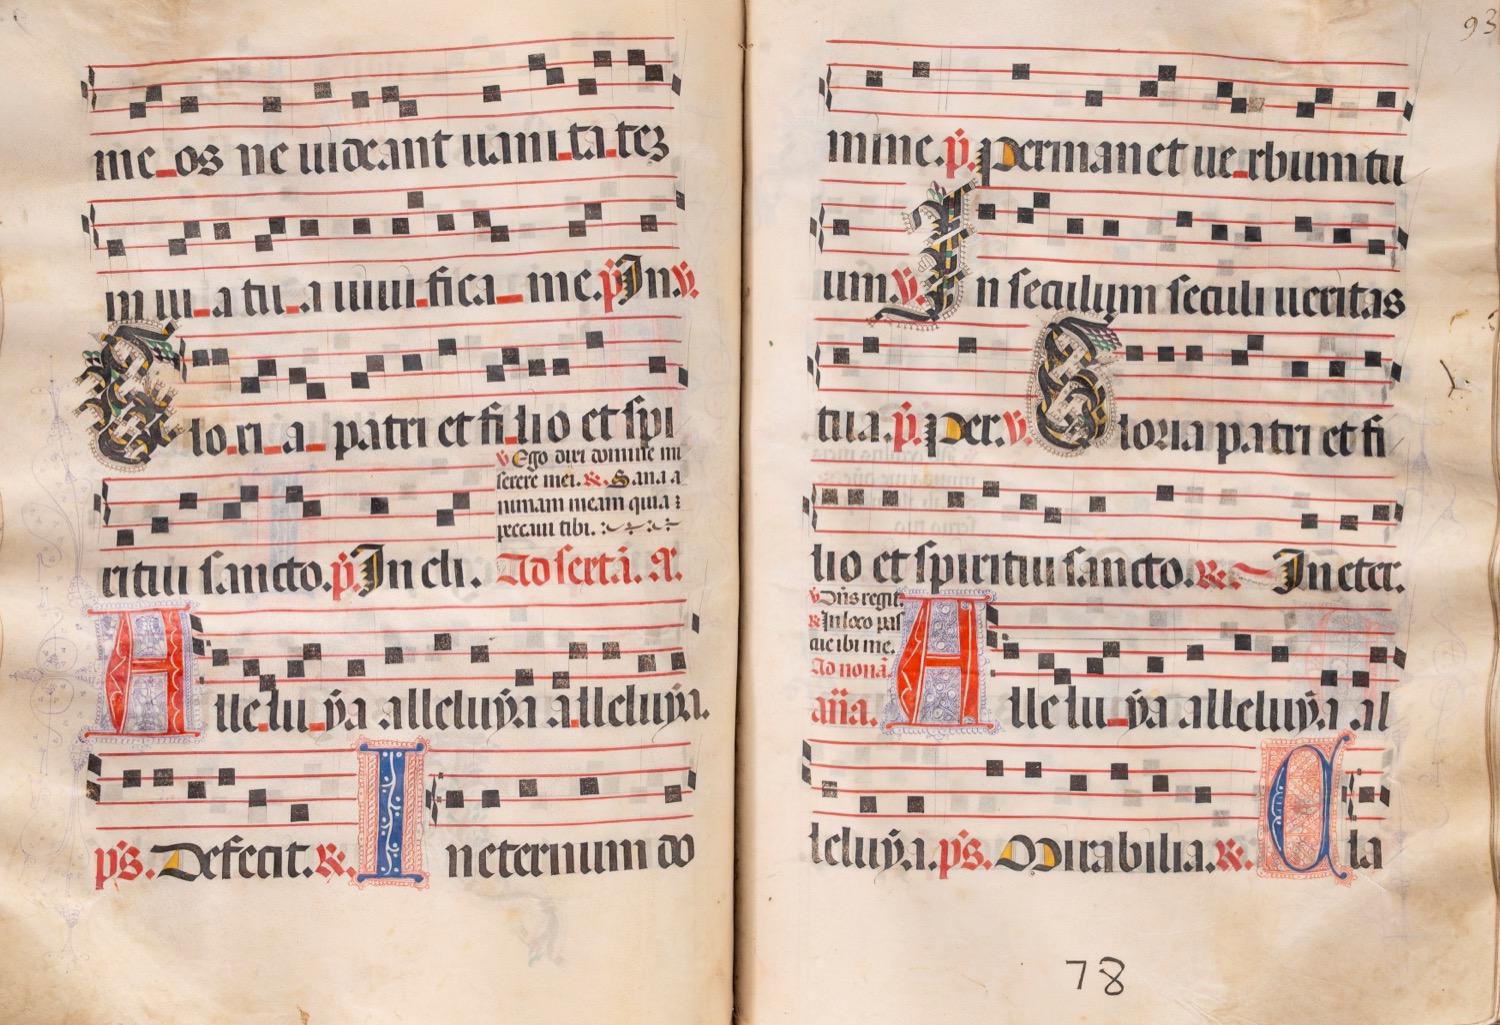 me_os ne uideant uani_ta_tez
in ui_a tu_a uiui_fica_ me. p̄ In. v.
Glo.ri_a_ patri et fi_lio et spi
v Ego dixi domine mi
serere mei. R. Sana a
nimam meam quia
peccaui tibi.
ritui sancto. p̄. In cli.
Ad sextā. A.
Alle_lu_ẏa alleluẏa a_lleluẏa.
p̄s. Defecit. R. In eternum do
93
mine. p̄. permanet ue_rbum tu
um. v. In seculum seculi ueritas
tua. p̄. per. v. Gloria patri et fi
lio et spiritui sancto. R. In eter.
v Dn̄s regit.
R In loco pas
cue ibi me.
Ad nonā
an̄a.
Alle lu_ẏa alleluẏa al
leluẏa. p̄s. Mirabilia. R. Cla
78